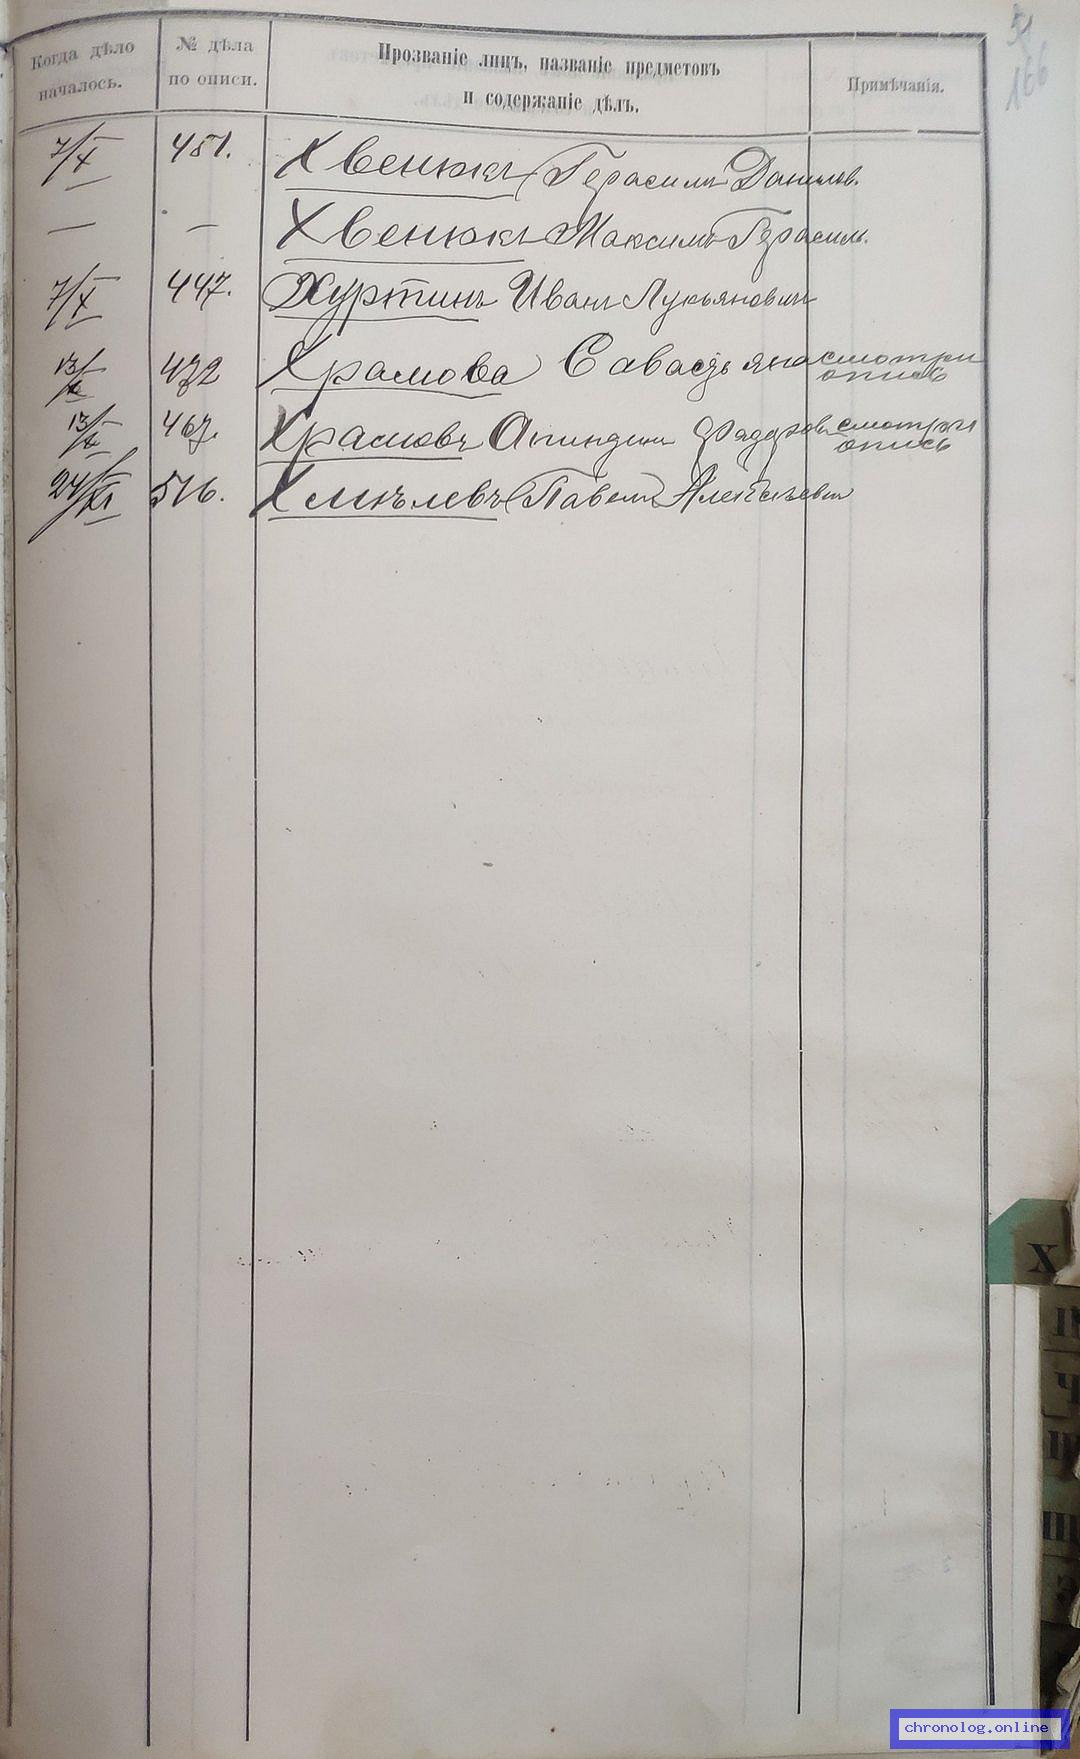 51
166
Когда дѣло
началось.
№ дѣла
по описи.
Прозваніе лицъ, названіе предметовъ
и содержаніе дѣлъ.
Примѣчанія.
7/X 451. Хвенюкъ Герасимъ Данилов.
— — Хвенюкъ Максимъ Герасим.
7/X 447. Хуртинъ Иванъ Лукьяновичъ
13/X 472 Храмова смотри
опись
13/X 467. Храмовъ смотри
опись
24/XI 516. Хмѣлевъ Павелъ Алексѣевич
Х
Ч
chronolog.online